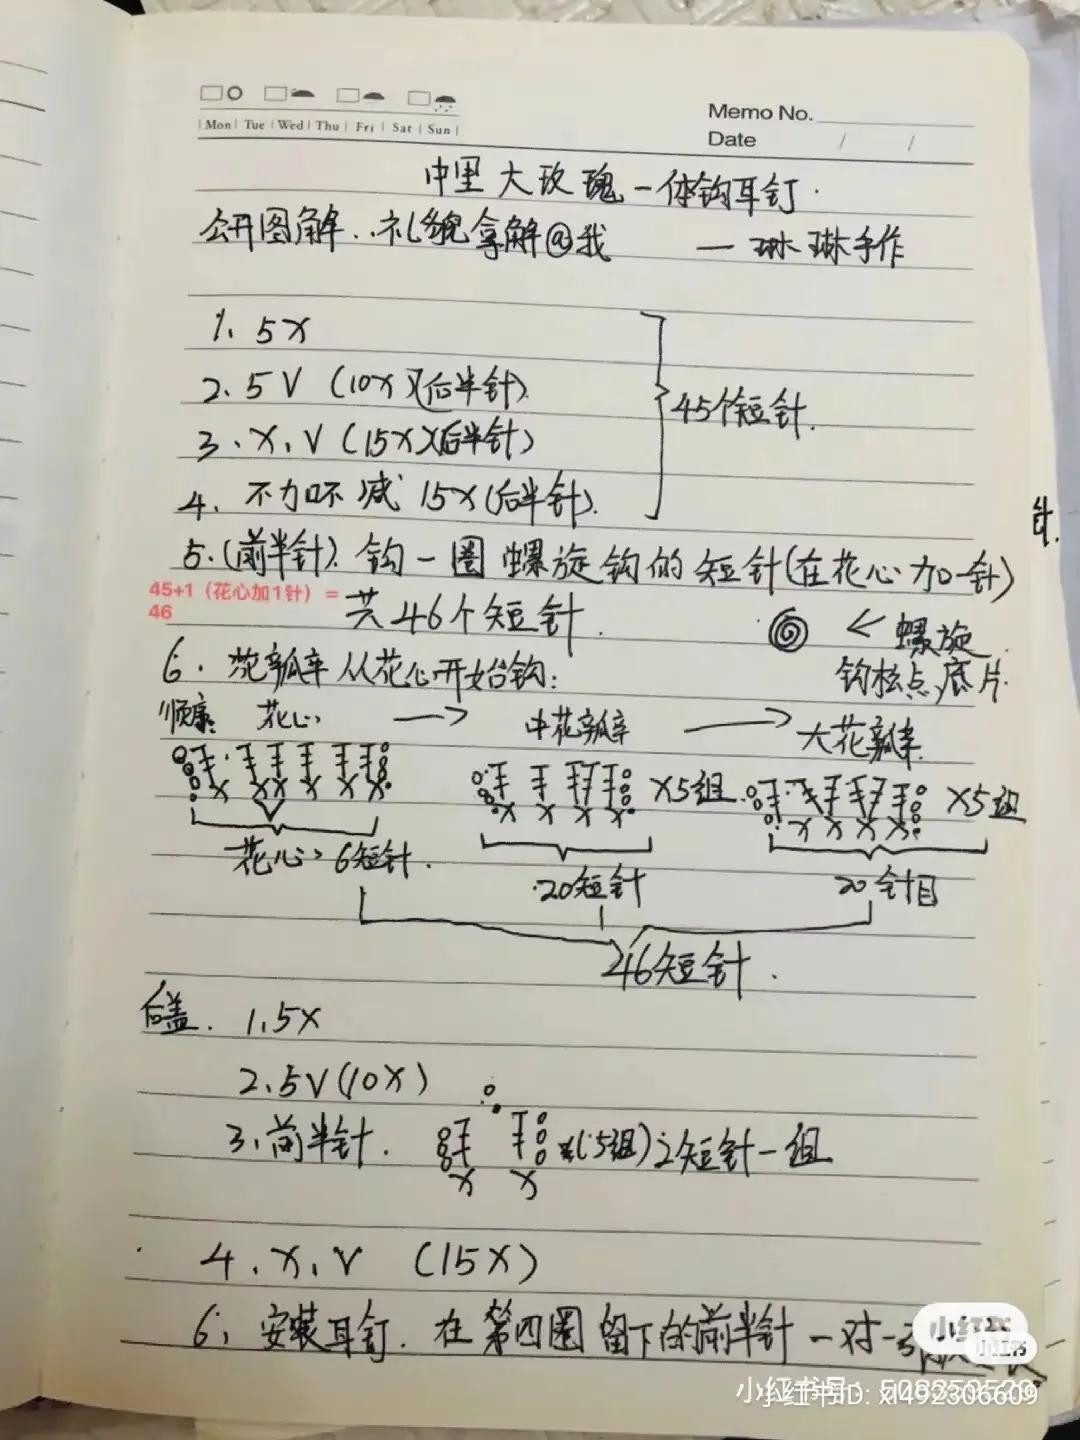 Mon Tue Wed Thu Fri Sat Sun
Memo No.
Date / /
中里大玫瑰一体钩耳钉.
公开图解..礼貌拿解@我 — 琳琳手作
1、5X
2、5V (10X)(后半针)
3、X、V (15X)(后半针)
4、不加不减 15X(后半针).
45个短针.
5.(前半针).钩一圈螺旋钩的短针(在花心加一针)
45+1(花心加1针)=
46
共46个短针.
← 螺旋
钩桩点底片.
6.花瓣从花心开始钩:
花心 → 中花瓣 → 大花瓣
X5组
X5组
花心、6短针.
20短针
20针目
46短针.
后盖. 1、5X
2、5V(10X)
3、前半针. (5组)2短针一组
4、X、V (15X)
6、安装耳钉.在第四圈留下的前半针一对一
针.
小红书
小红书
小红书号:
小红书ID: xl492306609